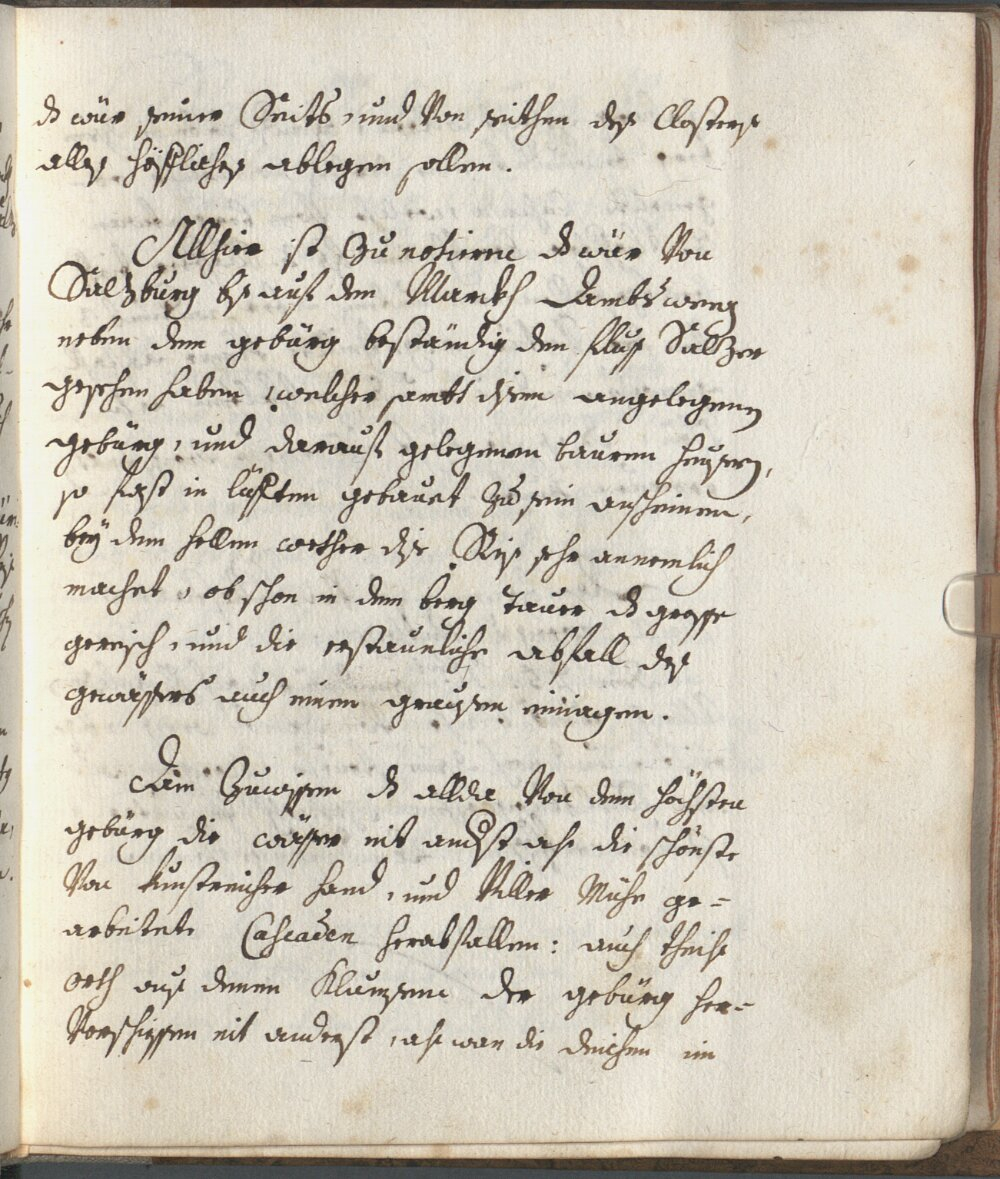 dz wür seiner Seits, und Von seithen des Closters
alles höffliches ablegen sollen.
Allhier ist Zu notieren dz wür Von
Saltzburg bis auf den Marckh
neben dem gebürg beständig den fluss Saltzer
gesehen haben, welcher sambt dem angelegenen
gebürg, und darauf gelegenen bauren heüsern,
so fast in lüfften gebauet Zu sein anscheinen,
bey dem hellen wether die Reis sehr annemlich
machet, ob schon in dem berg Taurr dz grosse
gereisch, und die erstaunliche abfall des
gewässers auch einen grausen einiagen.
Dan Zuwissen dz allda Von dem höchsten
gebürg die wässer nit anderst als die schönste
Von kunstreicher hand, und Viller Mühe ge=
arbeitete Cascaden herabfallen: auch theils
orth aus denen der gebürg her=
Vorschiessen nit anderst, als wan die im